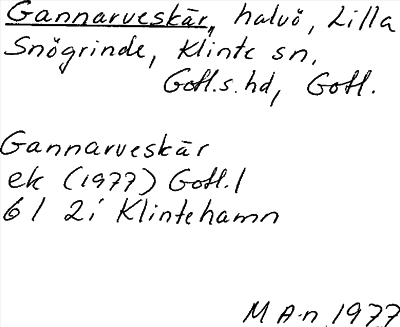 Gannarveskär, halvö, Lilla
Snögrinde, Klinte sn,
Gotl.s.hd, Gotl.
Gannarveskär
ek (1977) Gotl. 1
6 1 2i Klintehamn
M A-n 1977